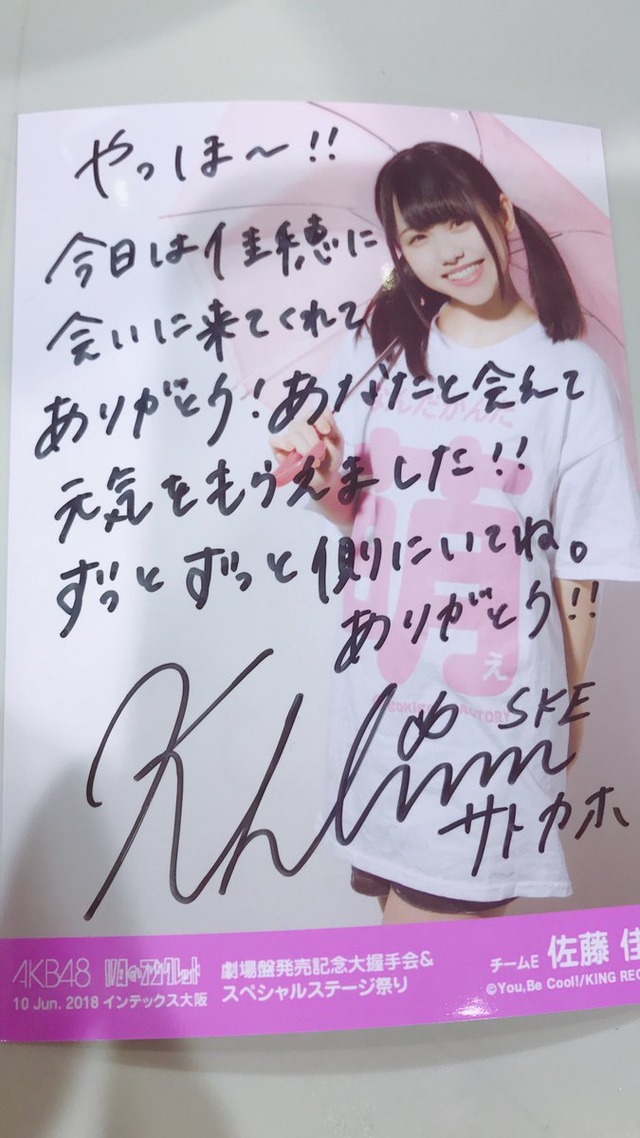 やっほ〜!!
今日は佳穂に
会いに来てくれて
ありがとう!あなたと会えて
元気をもらえました!!
ずっとずっと側にいてね。
ありがとう!!
SKE
サトカホ
なんだかんだ
萌
え
AKB48 11月のアンクレット
劇場盤発売記念大握手会&
スペシャルステージ祭り
10 Jun. 2018 インテックス大阪
チームE 佐藤 佳
©You,Be Cool!/KING REC